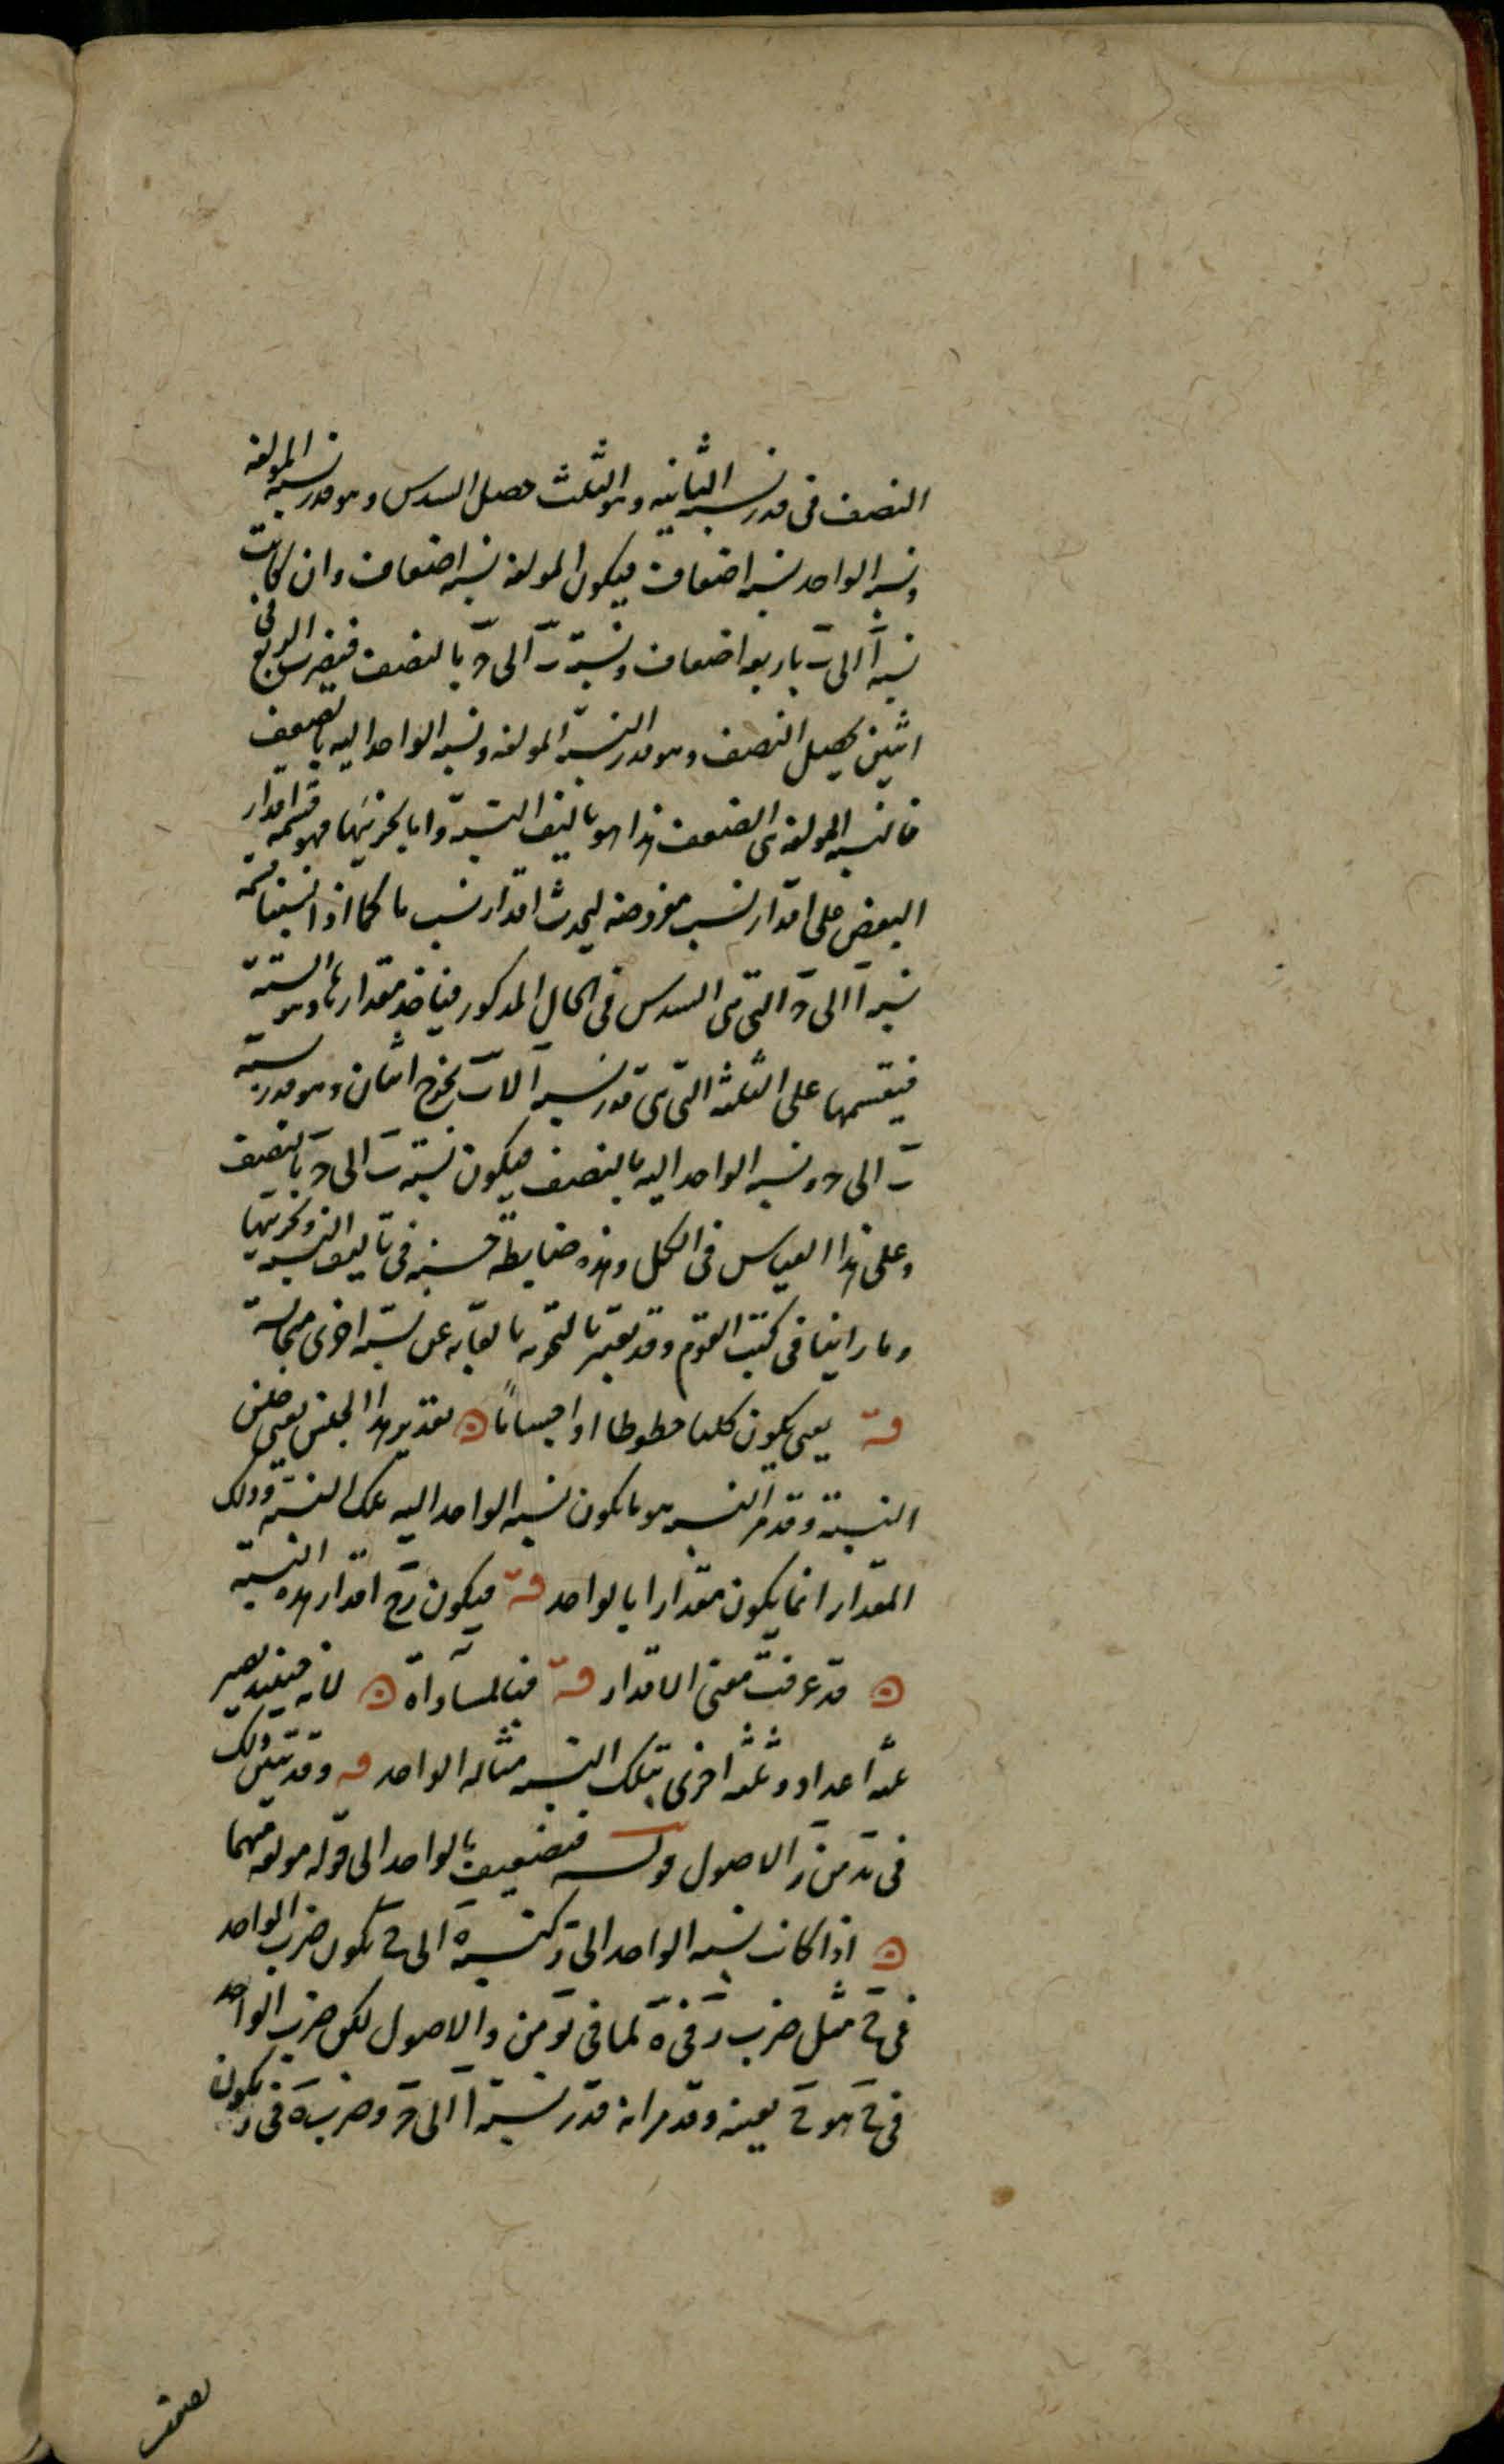 النصف فى قدر نسبة الثانيه وهو الثلث حصل السدس وهو قدر نسبة المولفه
ونسبة الواحد نسبة اضعاف فيكون المولفه نسبة اضعاف وان كانت
نسبة آ الى ب باربعة اضعاف ونسبة ب الى ج بالنصف فيضرب الربع فى
اثنين يحصل النصف وهو قدر النسبة المولفه ونسبة الواحد اليه بالضعف
فالنسبة المولفة هى الضعف هذا هو تاليف النسبة واما تجزيتها فهو قسمة اقدار
البعض على اقدار نسب مفروضه ليحدث اقدار نسب ما كما اذا شينا قسمة
نسبة آ الى ج التى هى السدس فى الحال المذكور فياخذ مقدارها وهو الستة
فيقسمها على الثلثة التى هى قدر نسبة آ الى ب يخرج اثنان وهو قدر نسبة
ب الى ج ونسبة الواحد اليه بالنصف فيكون نسبة ب الى ج بالنصف
وعلى هذا القياس فى الكل وهذه ضابطة حسنة فى تاليف النسبة وتجزيتها
وما راينا فى كتب القوم وقد يعتبر بالتجزيه بالقاء نسبة عن نسبة اخرى مجانسة
قه يعنى يكون كلها خطوطا او اجساما ۞ تقدير هذا الجنس يعنى جنس
النسبة وقد مر النسبة هو ما يكون نسبة الواحد اليه تلك النسبة وذلك
المقدار انما يكون مقدارا بالواحد قه فيكون رح اقدار هذه النسبة
۞ قد عرفت معنى الاقدار قه فبالمساواة ۞ لانه حينئذ يصير
ثلثة اعداد وثلثة اخرى بتلك النسبة مثاله الواحد و ه وقد تبين ذلك
فى يد من ز الاصول قوله فتضعيف بالواحد الى قوله مولفة منهما
۞ اذا كانت نسبة الواحد الى ز كنسبة ه الى ح يكون ضرب الواحد
فى ح مثل ضرب ز فى ه لما فى يو من و الاصول لكن ضرب الواحد
فى ح هو ح بعينه وقد مر انه قدر نسبة آ الى ج وضرب ه فى ز يكون